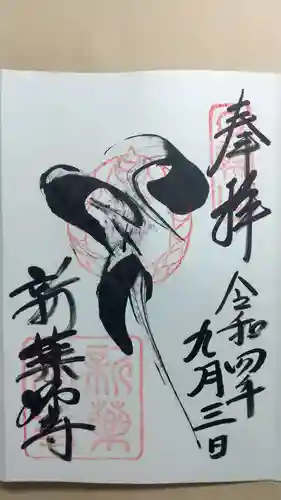 奉拝
令和四年
九月三日
新薬師寺